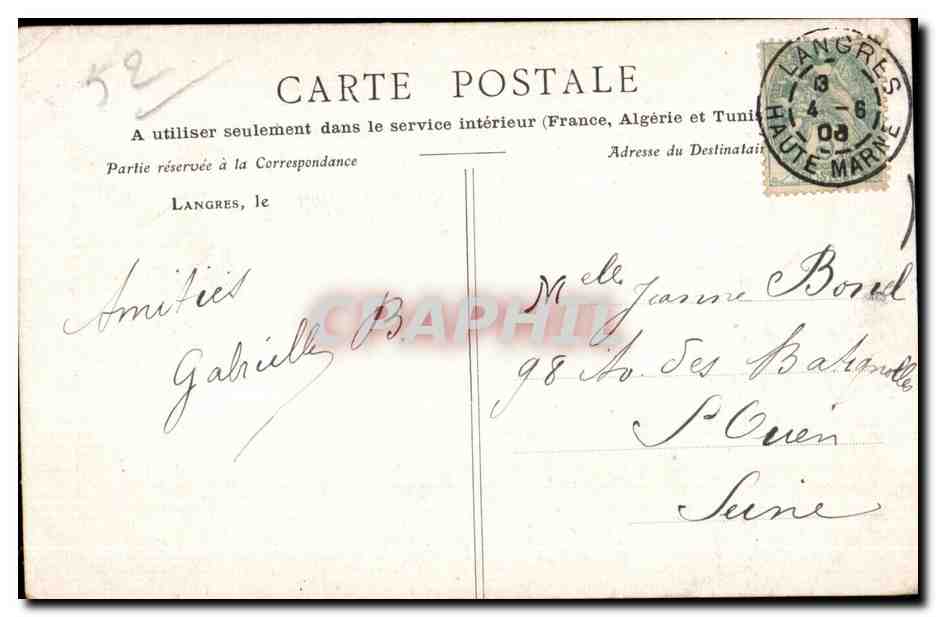 52
CARTE POSTALE
A utiliser seulement dans le service intérieur (France, Algérie et Tunis
Partie réservée à la Correspondance
Adresse du Destinatair
LANGRES
13
4 - 6
HAUTE MARNE
LANGRES, le
Amitiés
Gabrielle B.
CPAPHIL
Melle Jeanne Bonel
98 Av. des Batignolles
St Ouen
Seine